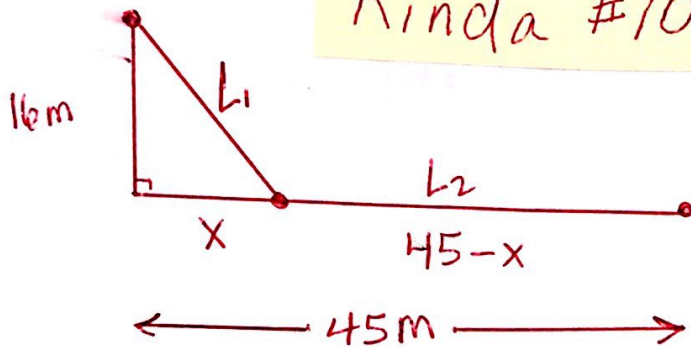 Kinda #10
16m
L1
L2
x
45-x
45m